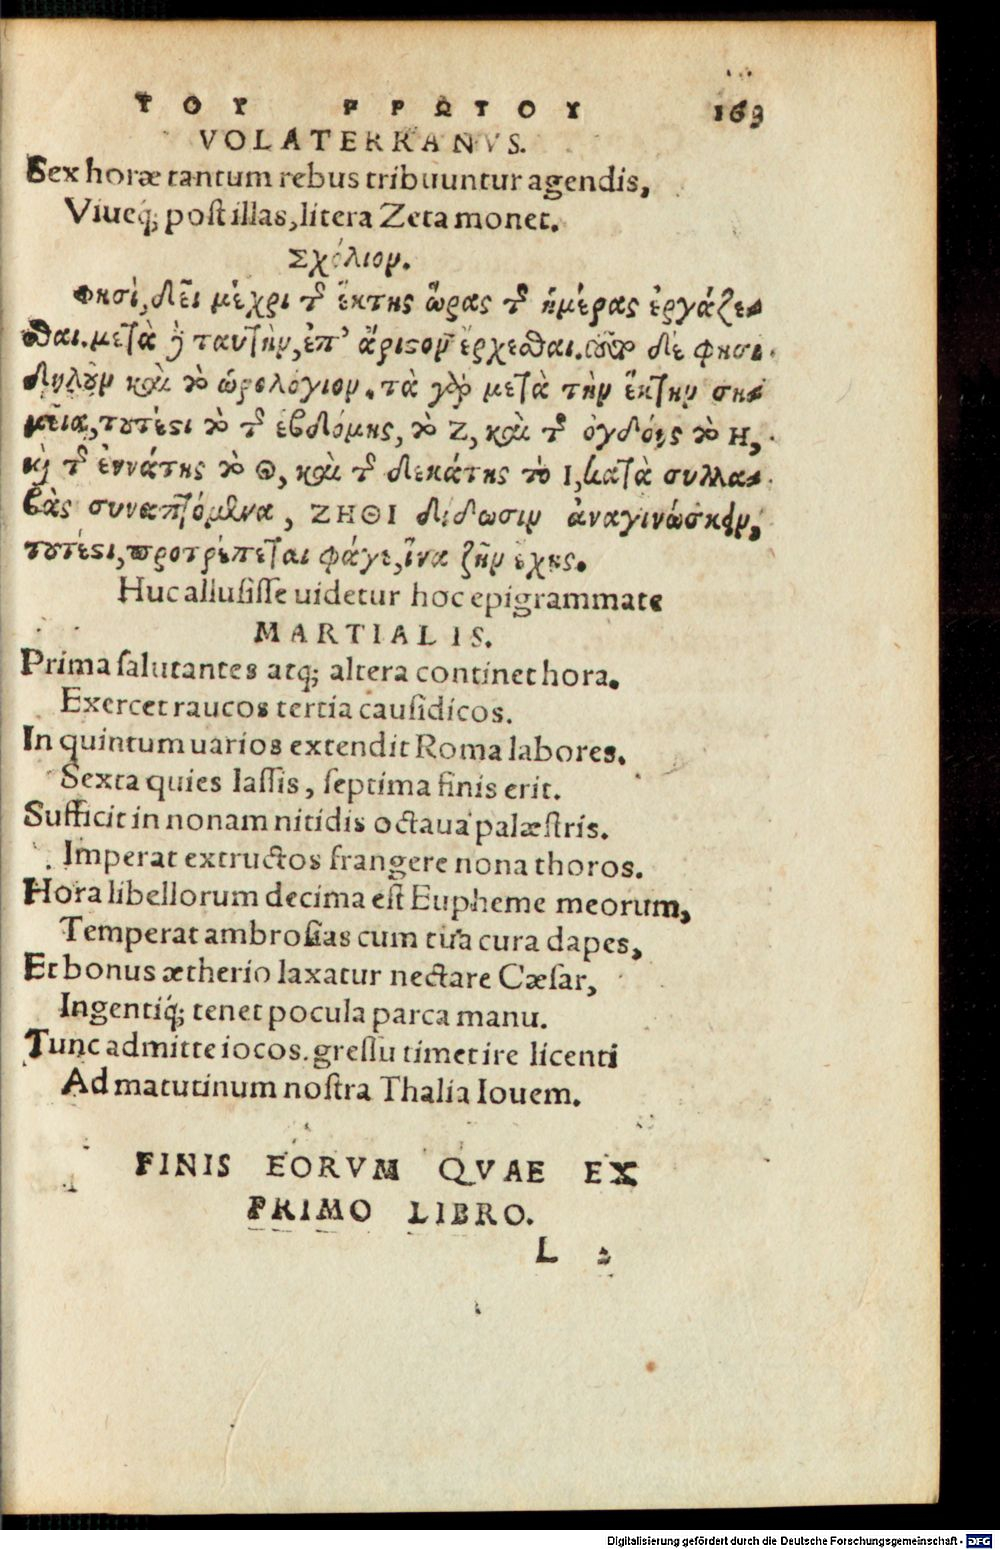 ΤΟΥ ΡΡΩΤΟΥ 163
VOLATERRANVS.
Sex horæ tantum rebus tribuuntur agendis,
Viueq́; post illas, litera Zeta monet.
Σχόλιον.
Φησὶ, δεῖ μέχρι τ̃ ἕκτης ὥρας τ̃ ἡμέρας ἐργάζε-
σθαι. μετὰ ἢ ταυτὴν, ἐπ' ἄριστον ἔρχεσθαι. δέ φησι
δηλοῦν καὶ τὸ ὡρολόγιον. τὰ γὰρ μετὰ τὴν ἕκτην ση-
μεῖα, τουτέστι τὸ τ̃ ἑβδόμης, τὸ Ζ, καὶ τ̃ ὀγδόης τὸ Η,
κὶ τ̃ ἐννάτης τὸ Θ, καὶ τ̃ δεκάτης τὸ Ι, κατὰ συλλα-
βὰς συναπτόμενα, ΖΗΘΙ δίδωσιν ἀναγινώσκειν,
τουτέστι, προτρέπεται φάγε, ἵνα ζῆν ἔχης.
Huc allusisse uidetur hoc epigrammate
MARTIALIS.
Prima salutantes atq; altera continet hora.
Exercet raucos tertia causidicos.
In quintum uarios extendit Roma labores.
Sexta quies lassis, septima finis erit.
Sufficit in nonam nitidis octaua palæstris.
Imperat extructos frangere nona thoros.
Hora libellorum decima est Eupheme meorum,
Temperat ambrosias cum tua cura dapes,
Et bonus ætherio laxatur nectare Cæsar,
Ingentiq́; tenet pocula parca manu.
Tunc admitte iocos. gressu timet ire licenti
Ad matutinum nostra Thalia Iouem.
FINIS EORVM QVAE EX
PRIMO LIBRO.
L 2
Digitalisierung gefördert durch die Deutsche Forschungsgemeinschaft - DFG